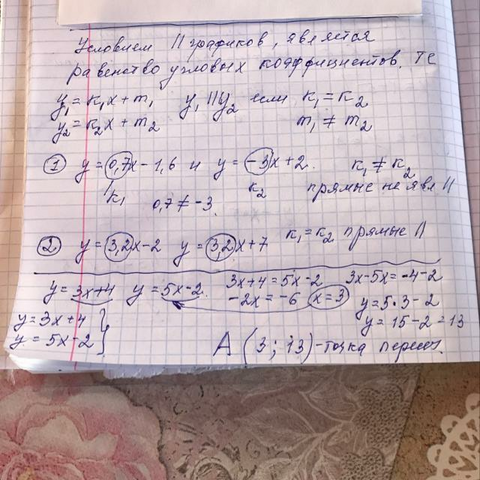 Условием || графиков, является
равенство угловых коэффициентов. Те
y₁ = k₁x + m₁ y₁ || y₂ если k₁ = k₂
y₂ = k₂x + m₂ m₁ ≠ m₂
① y = 0,7x − 1,6 и y = −3x + 2. k₁ ≠ k₂
k₁ 0,7 ≠ −3. k₂ прямые не явл ||
② y = 3,2x − 2 y = 3,2x + 7 k₁ = k₂ прямые ||
y = 3x + 4 y = 5x − 2. 3x + 4 = 5x − 2 3x − 5x = −4 − 2
−2x = −6 x = 3 y = 5 · 3 − 2
y = 3x + 4 } y = 15 − 2 = 13
y = 5x − 2
A (3 ; 13) - точка пересеч.